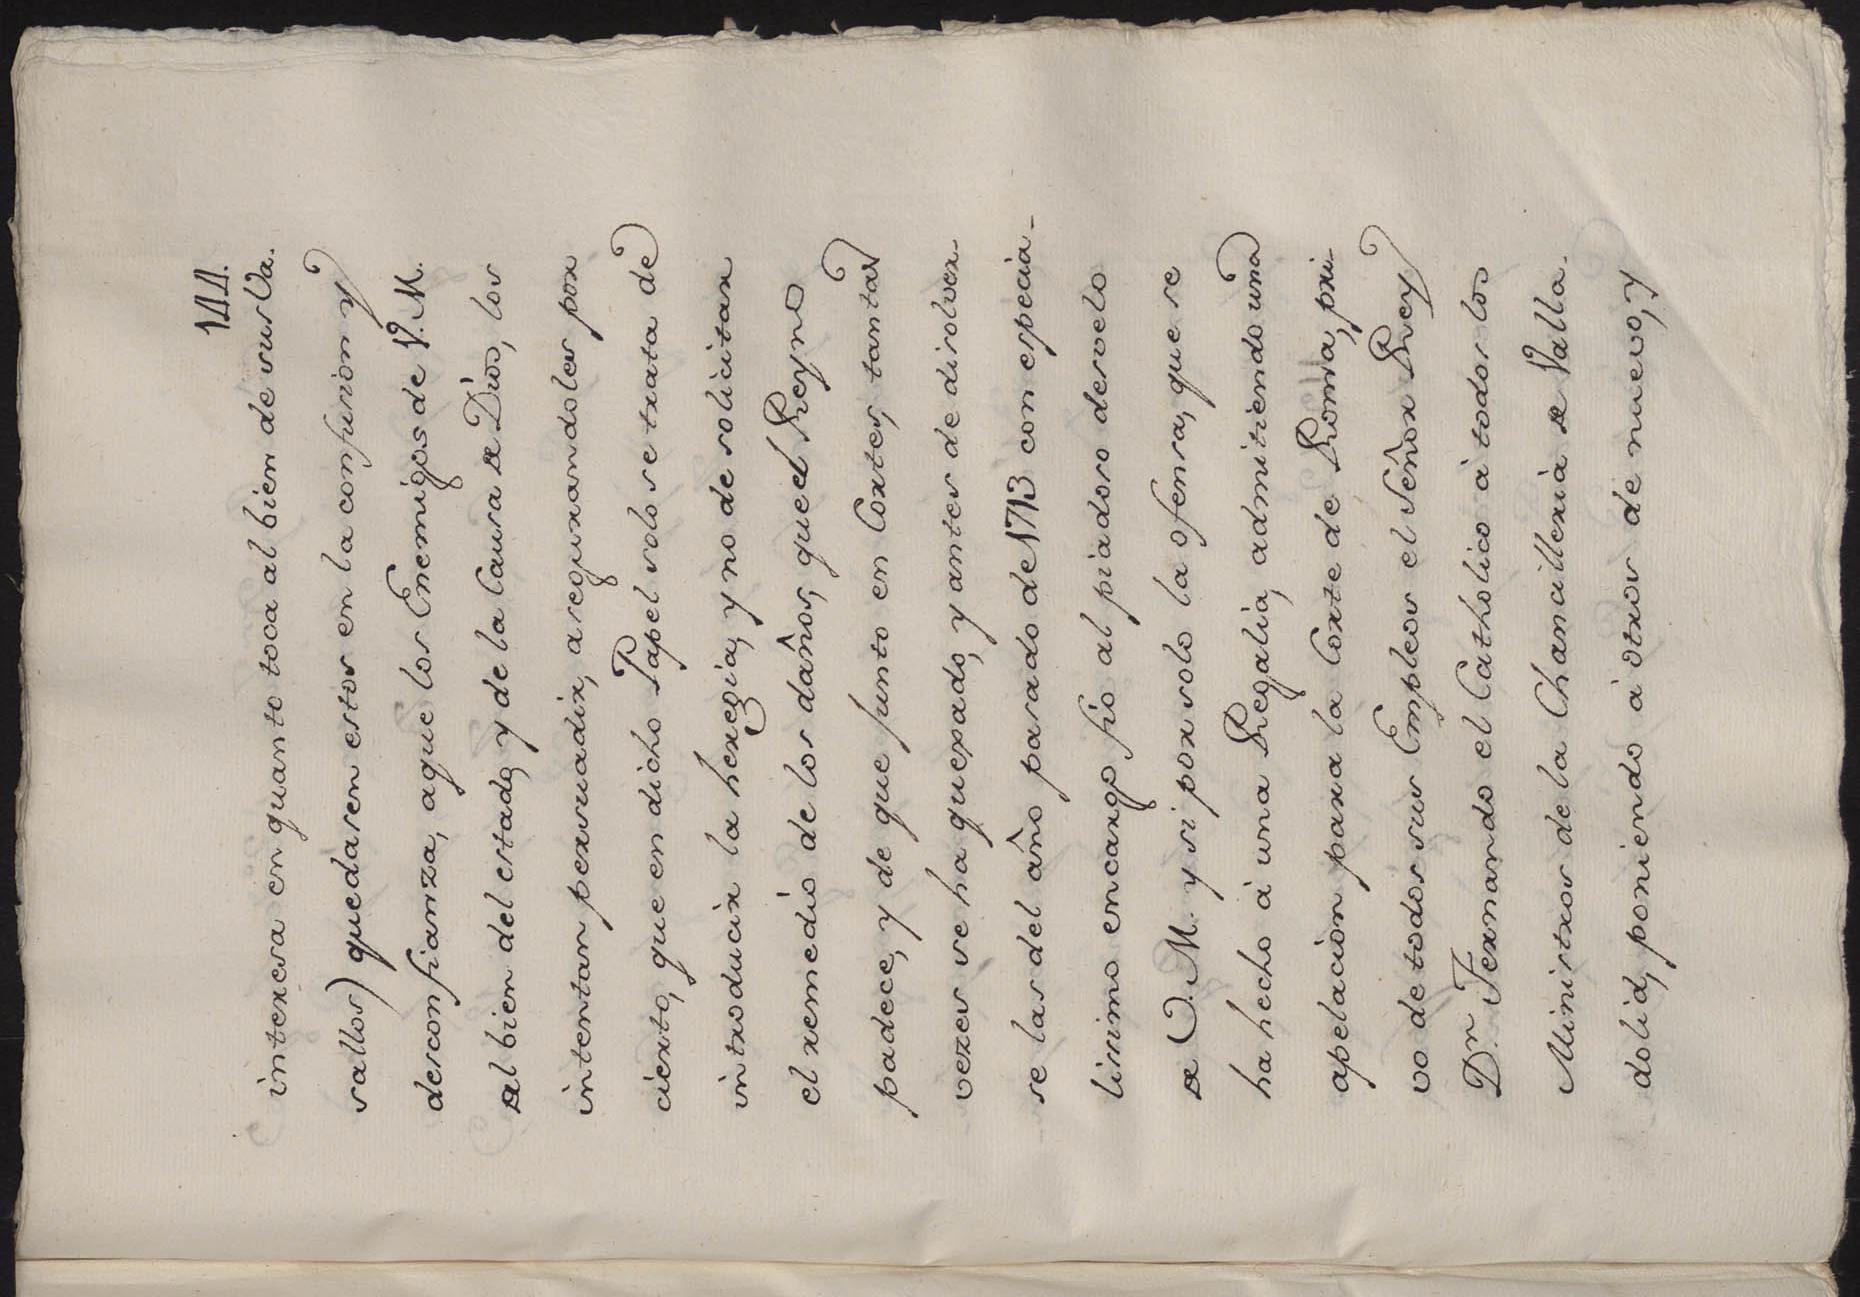 144.
interesa en quanto toca al bien de sus Va-
sallos) quedasen estos en la confusion y
desconfianza, a que los Enemigos de V. M.
al bien del estado, y de la Causa de Dios, los
intentan persuadir, asegurandoles por
cierto, que en dicho Papel solo se trata de
introducir la heregia, y no de solicitar
el remedio de los daños, que el Reyno
padece, y de que junto en Cortes, tantas
vezes se ha quexado, y antes de disolver-
se las del año pasado de 1713 con especia-
lisimo encargo fió al piadoso desvelo
de V. M. y si por solo la ofensa, que se
ha hecho à una Regalia, admitiendo una
apelacion para la Corte de Roma, pri-
vo de todos sus Empleos el Señor Rey
Dn. Fernando el Catholico à todos los
Ministros de la Chancilleria de Valla-
dolid, poniendo à otros de nuevo, y